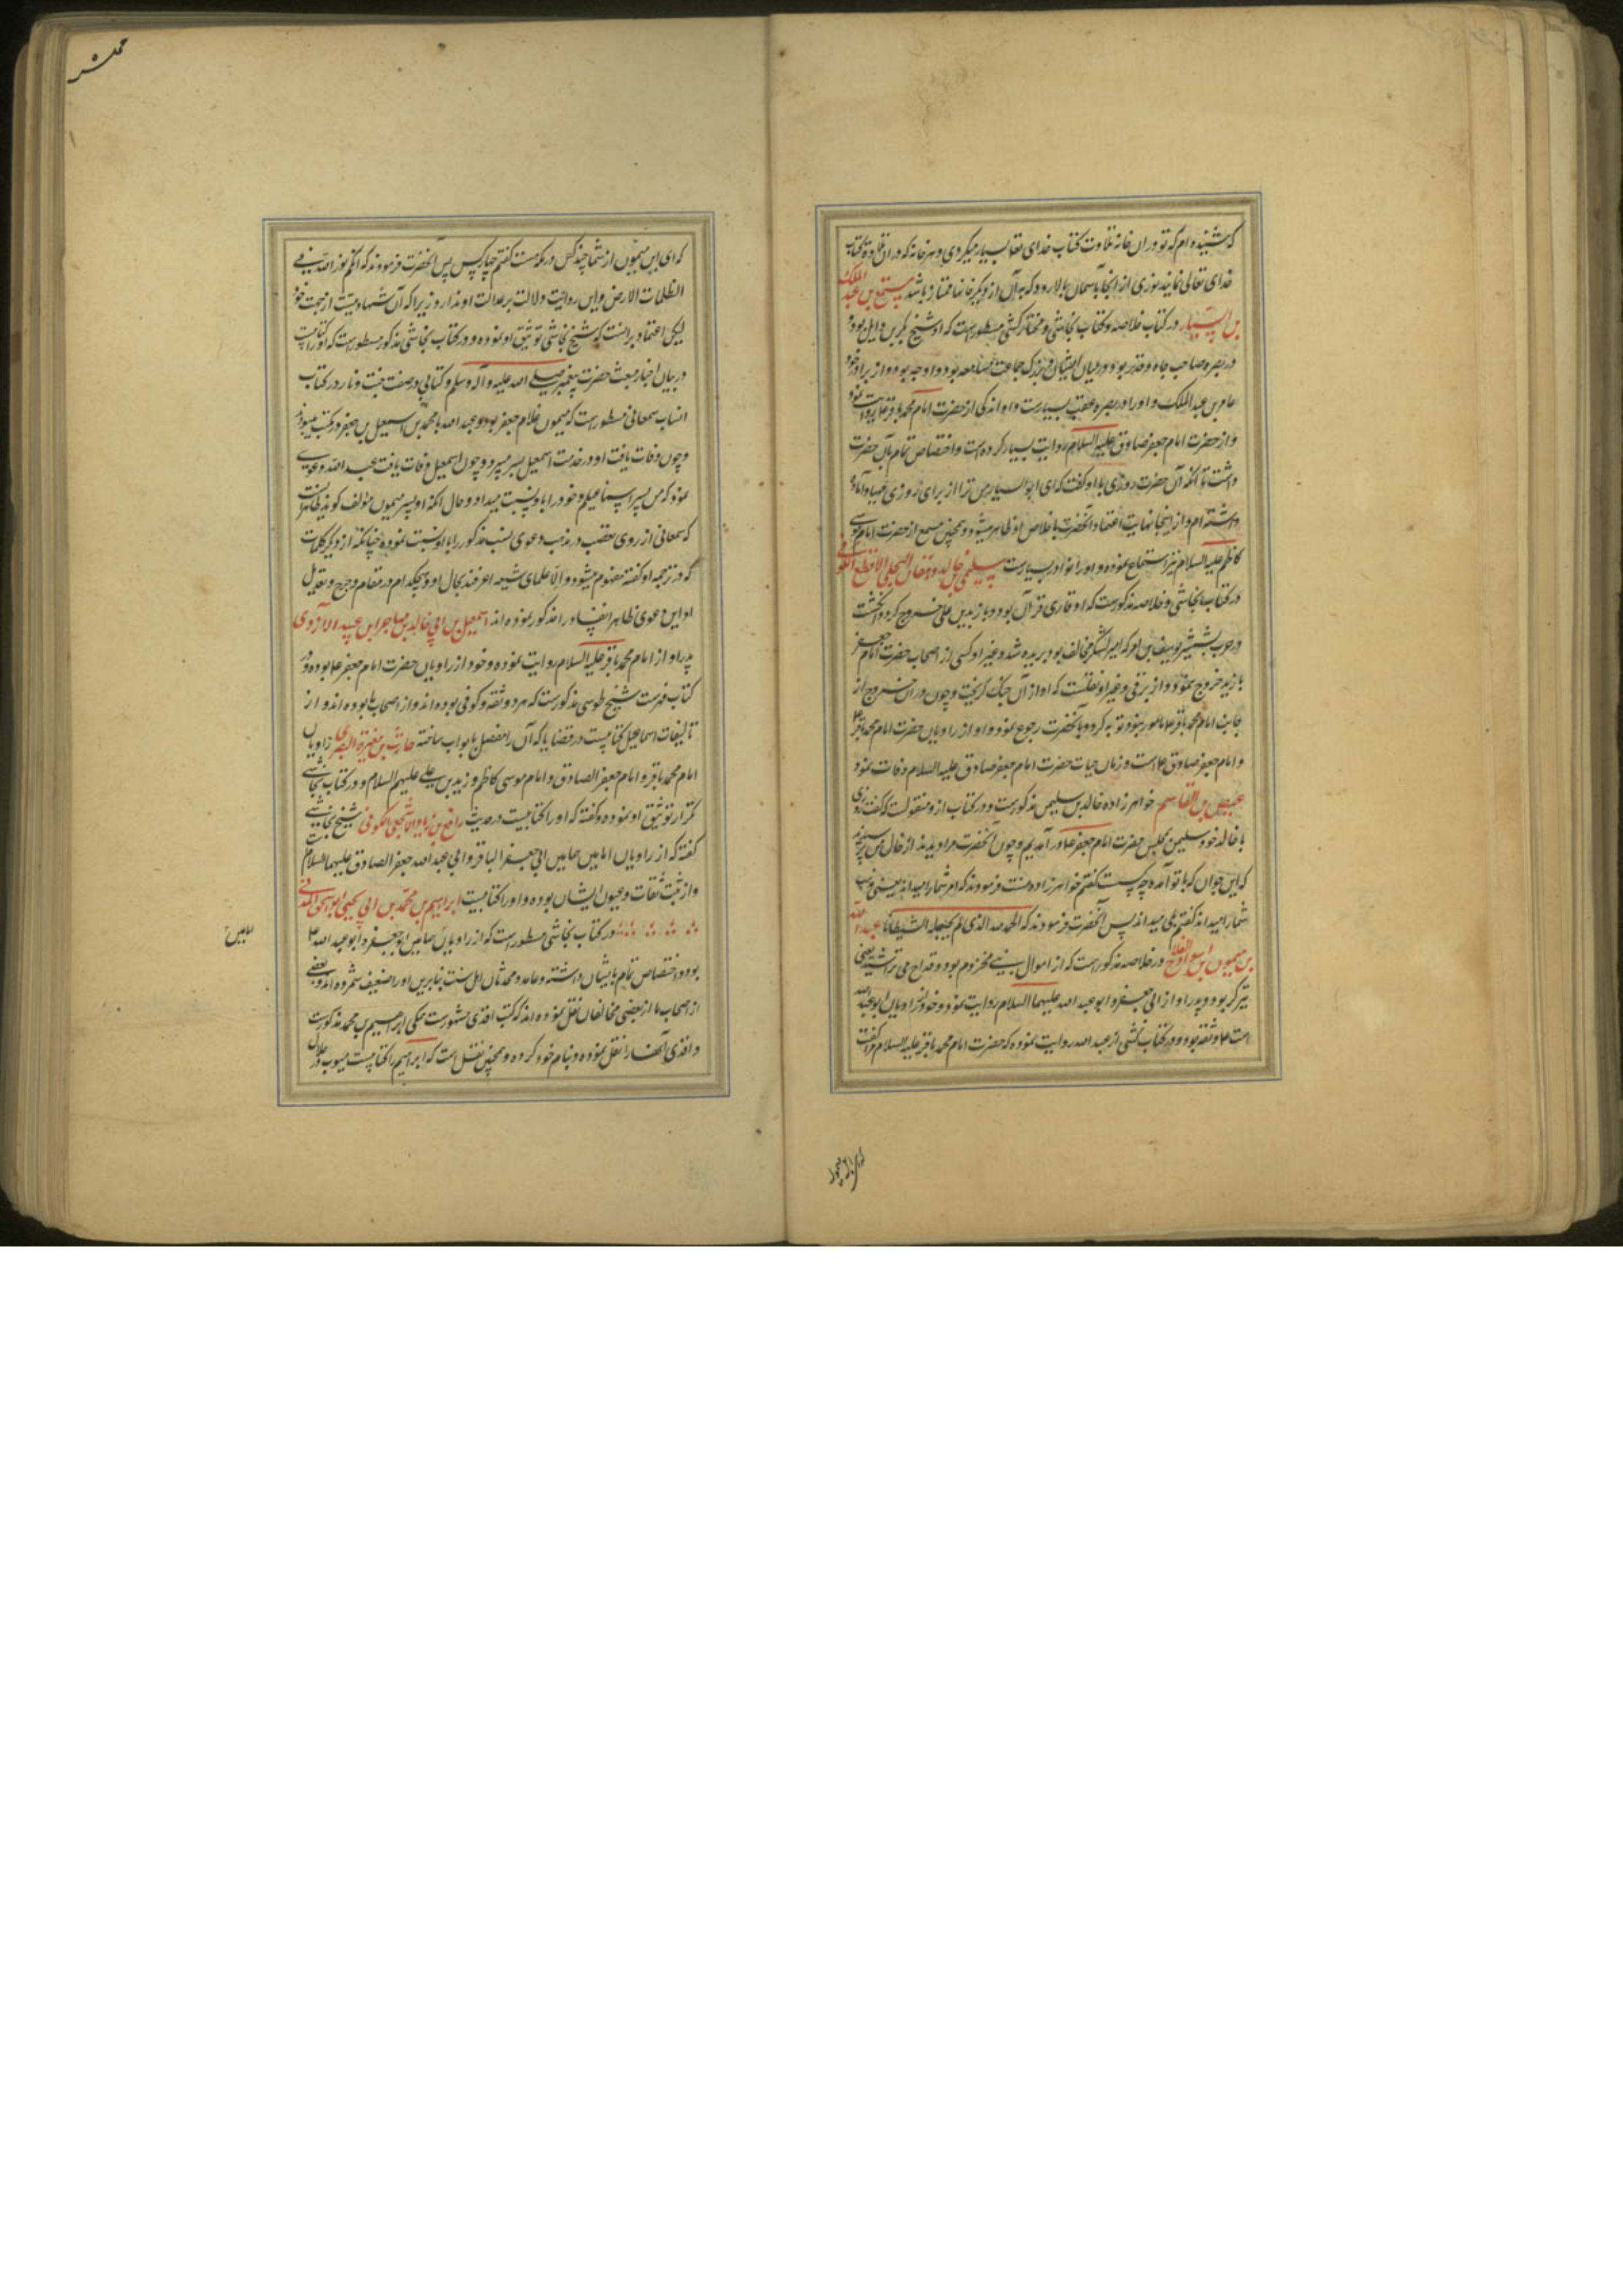 که شنیده ام که تو در آن خانه تلاوت کتاب خدای تعا بسیار میکردی و هر خانه که در آن تلاوة کتاب
خدای تعالی نمایند نوری از انجا بآسمان بالا رود که به آن از دیگر خانها ممتاز باشد مسمع بن عبد الملک
بن السیار در کتاب خلاصه و کتاب نجاشی و مختار کشی مسطورست که او شیخ بکر بن وایل بود و
در بصره صاحب جاه و قدر بود و در میان ایشان و بزرگ جماعت مسامعه بود و اوجه بود از برادر خود
عامر بن عبد الملک و او را در بصره عقب بسیارست و او اندکی از حضرت امام محمد باقر علا روایت نمود
و از حضرت امام جعفر صادق علیه السلام روایت بسیار کرده است و اختصاص تمام بآن حضرت
داشت تا آنکه آن حضرت روزی با او گفت که ای ابو السیار من ترا از برای روزی مهیا و آماده
داشته ام و از اینجا نهایت اعتقاد آنحضرت باخلاص او ظاهر میشود و همچنین مسمع از حضرت امام موسی
کاظم علیه السلام نیز استماع نموده و او را نوادر بسیارست سلیمن خالد دهقان البجلی الاقطع الکوفی
در کتاب نجاشی و خلاصه مذکورست که او قاری قرآن بود و با زید بن علی خروج کرد و انگشت
در حرب بشمشیر یوسف بن عمر که امیر لشکر مخالف بود بریده شد و غیر او کسی از اصحاب حضرت امام جعفر
با زید خروج ننمود و از برقی و غیر او نقلست که او از آن جنگ گریخت و چون در آن خروج از
جانب امام محمد باقر علا مامور نبود توبه کرد و بآنحضرت رجوع نمود و او از راویان حضرت امام محمد باقر ع
و امام جعفر صادق علا است و زمان حیات حضرت امام جعفر صادق علیه السلام وفات نمود
عیص بن القاسم خواهر زاده خالد بن سلیمن مذکورست و در کتاب از و منقولست که گفت روزی
با خالد خود سلیمن بمجلس حضرت امام جعفر علا در آمدیم و چون آنحضرت مرا دیدند از خال من پرسیدند
که این جوان که با تو آمده چه کس است گفتم خواهر زاده منست فرمودند که امر شما را میداند یعنی مذهب
شما را میداند گفتم بلی میداند پس آنحضرت فرمودند که الحمد لله الذی لم یجعله شیطانا عبد الله
بن میمون بن اسود القداح در خلاصه مذکور است که از اموال بنی مخزوم بود و قداح می تراشید یعنی
تیرگر بود و پدر او از ابی جعفر و ابو عبد الله علیهما السلام روایت نموده و خود از راویان ابو عبد الله
است علا و ثقه بود و در کتاب کشی از عبد الله روایت نموده که حضرت امام محمد باقر علیه السلام و گفت
که ای ابن میمون از شما چند کس در مکه هست گفتم چهار کس پس آنحضرت فرمودند که انکم نور الله فی
الظلمات الارض و این روایت دلالت بر عدالت او ندارد زیرا که آن شهادتیست از جهت خود
لیکن اعتماد بر انست که شیخ نجاشی توثیق او نموده و در کتاب نجاشی مذکور مسطورست که او را کتابیست
در بیان اخبار مبعث حضرت پیغمبر صلی الله علیه و آله و سلم و کتابی در صفت جنت و نار در کتاب
انساب سمعانی مسطور است که میمون غلام جعفر بود و عبد الله با محمد بن اسمعیل بن جعفر در مکتب میبود
و چون وفات یافت او در خدمت اسمعیل بسر میبرد و چون اسمعیل وفات یافت عبد الله دعوی
نمود که من پسر اسماعیلم و خود را باو نسبت میداد و حال آنکه او پسر میمون مؤلف گوید ظاهرا آنست
که سمعانی از روی تعصب در مذهب دعوی نسب مذکور را باو نسبت نموده چنانکه از دیگر کلمات
که در ترجمه او گفته مفهوم میشود و الا علمای شیعه اعرفند بحال او و هیچکدام در مقام جرح و تعدیل
او این دعوی ظاهر الفساد را مذکور ننموده اند اسمعیل بن ابی خالد بن مهاجر ابن عبید الازدی
پدر او از امام محمد باقر علیه السلام روایت نموده و خود از راویان حضرت امام جعفر علا بوده و در
کتاب فهرست شیخ طوسی مذکورست که هر دو ثقه و کوفی بوده اند و از اصحاب ما بوده اند و از
تالیفات اسماعیل کتابیست در قضایا که آن را مفصل بابواب ساخته حارث بن مغیرة البصری از راویان
امام محمد باقر و امام جعفر الصادق و امام موسی کاظم و زید بن علی علیهم السلام و در کتاب نجاشی
تکرار توثیق او نموده و گفته که او را کتابیست در حدیث رافع بن زیاد الاشجعی الکوفی شیخ نجاشی
گفته که از راویان امامین همامین ابی جعفر الباقر و ابی عبد الله جعفر الصادق علیهما السلام است
و از ثبت ثقات و عیون ایشان بوده و او را کتابیست ابراهیم بن محمد بن ابی یحیی ابو اسحق المدنی
در کتاب نجاشی مسطور است که از راویان همامین ابو جعفر و ابو عبد الله ع
بود و اختصاص تمام بایشان داشته و عامه و محدثان اهل سنت بنا برین او را ضعیف شمرده اند و بعضی
از اصحاب ما از بعضی مخالفان نقل نموده اند که کتب واقدی مشهورست بتمامی ابراهیم بن محمد مذکورست
و واقدی آنها را نقل نموده و بنام خود کرده و همچنین نقل است که ابراهیم را کتابیست مبوب در حلال
امامین